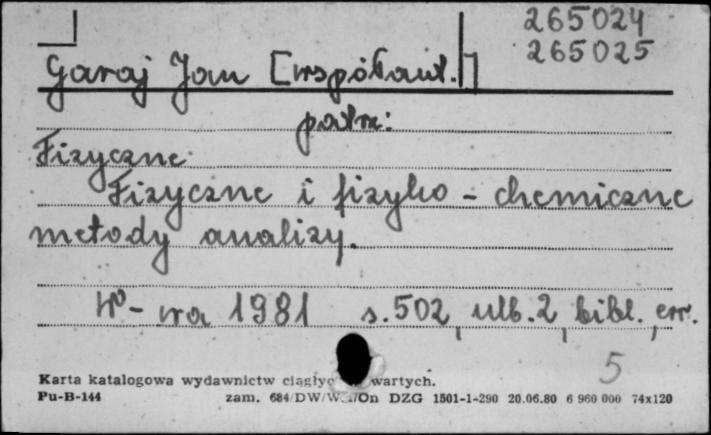 265024
265025
Garaj Jan [współaut.]
patrz:
Fizyczne
Fizyczne i fizyko - chemiczne
metody analizy.
W-wa 1981 s. 502, nlb. 2, bibl., err.
5
Karta katalogowa wydawnictw ciągłyc wartych.
Pu-B-144 zam. 684/DW/W /On DZG 1501-1-290 20.06.80 6 960 000 74x120